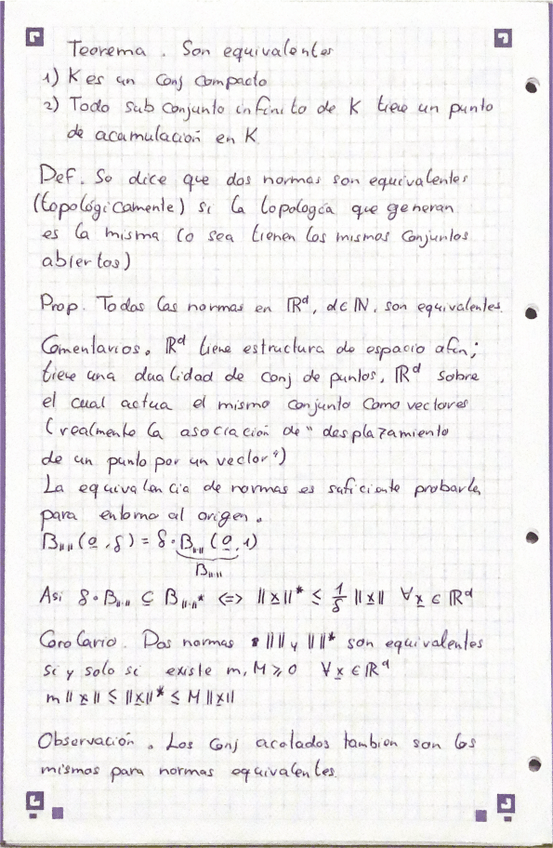 Teorema. Son equivalentes
1) K es un Conj Compacto
2) Todo sub conjunto infinito de K tiene un punto
de acumulación en K
Def. Se dice que dos normas son equivalentes
(topológicamente) si la topología que generan
es la misma (o sea tienen los mismos conjuntos
abiertos)
Prop. Todas las normas en ℝᵈ, d∈ℕ, son equivalentes.
Comentarios. ℝᵈ tiene estructura de espacio afin;
tiene una dualidad de conj de puntos, ℝᵈ sobre
el cual actua el mismo conjunto como vectores
(realmente la asociación de "desplazamiento
de un punto por un vector")
La equivalencia de normas es suficiente probarla
para entorno al origen.
B‖·‖(0, δ) = δ·B‖·‖(0, 1)
B‖·‖
Asi δ·B‖·‖ ⊆ B‖·‖* <=> ‖x‖* ≤ 1/δ ‖x‖ ∀x ∈ ℝᵈ
Corolario. Dos normas ‖ ‖ y ‖ ‖* son equivalentes
si y solo si existe m, M ≥ 0 ∀x ∈ ℝᵈ
m‖x‖ ≤ ‖x‖* ≤ M‖x‖
Observación. Los Conj acotados tambien son los
mismos para normas equivalentes.